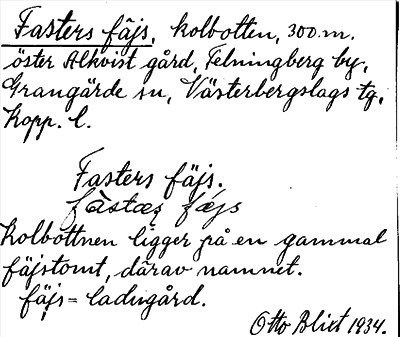 Fasters fäjs, kolbotten, 300 m.
öster Alkvist gård, Telningberg by,
Grangärde sn, Västerbergslags tg,
Kopp. l.
Fasters fäjs.
fàstæș fæjs
Kolbottnen ligger på en gammal
fäjstomt, därav namnet.
fäjs = ladugård.
Otto Blixt 1934.